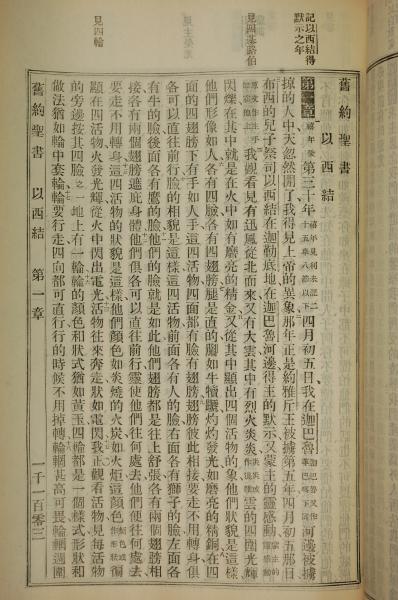 記以西結得
默示之年
見四基路伯
見四輪
舊約聖書
以西結
第一章
第三十年
四月初五日我在迦巴魯
河邊被擄
掠的人中天忽然開了我得見上帝的異象那年正是約雅斤王被擄第五年四月初五那日
布西的兒子祭司以西結在迦勒底地在迦巴魯河邊得主的默示又蒙主的靈感動
我觀看見有迅風從北而來又有大雲其中有烈火炎炎
雲的四圍光輝
閃爍在其中就是在火中如有磨亮的精金又從其中顯出四個活物的象他們狀貌是這樣
他們形像如人各有四臉各有四翅膀腿是直的腳如牛犢蹏灼灼發光如磨亮的精銅在四
面的四翅膀下有手如人手這四活物四面都有臉有翅膀翅膀彼此相接要走不用轉身俱
各可以直往前行臉的相貌是這樣這四活物前面各有人的臉右面各有獅子的臉左面各
有牛的臉後面各有鷹的臉他們的臉就是如此他們翅膀都是往上舒張各有兩個翅膀相
接各有兩個翅膀遮庇身體他們俱各可以直往前行靈使他們往何處去他們便往何處去
要走不用轉身這四活物的狀貌是這樣他們顏色如炎燒的火炭如火炬這顏色
徧
顯在四活物火發光輝從火中閃出電光活物往來奔走狀如電閃我正觀看活物見每活物
的旁邊按其四臉
一地上有一輪輪的顏色和狀式猶如黃玉四輪都是一個樣式形狀和
做法猶如輪中套輪輪要行走四向都可直行行的時候不用掉轉輪輞甚高可畏輪輞週圍
舊約聖書
以西結
第一章
一千一百零三